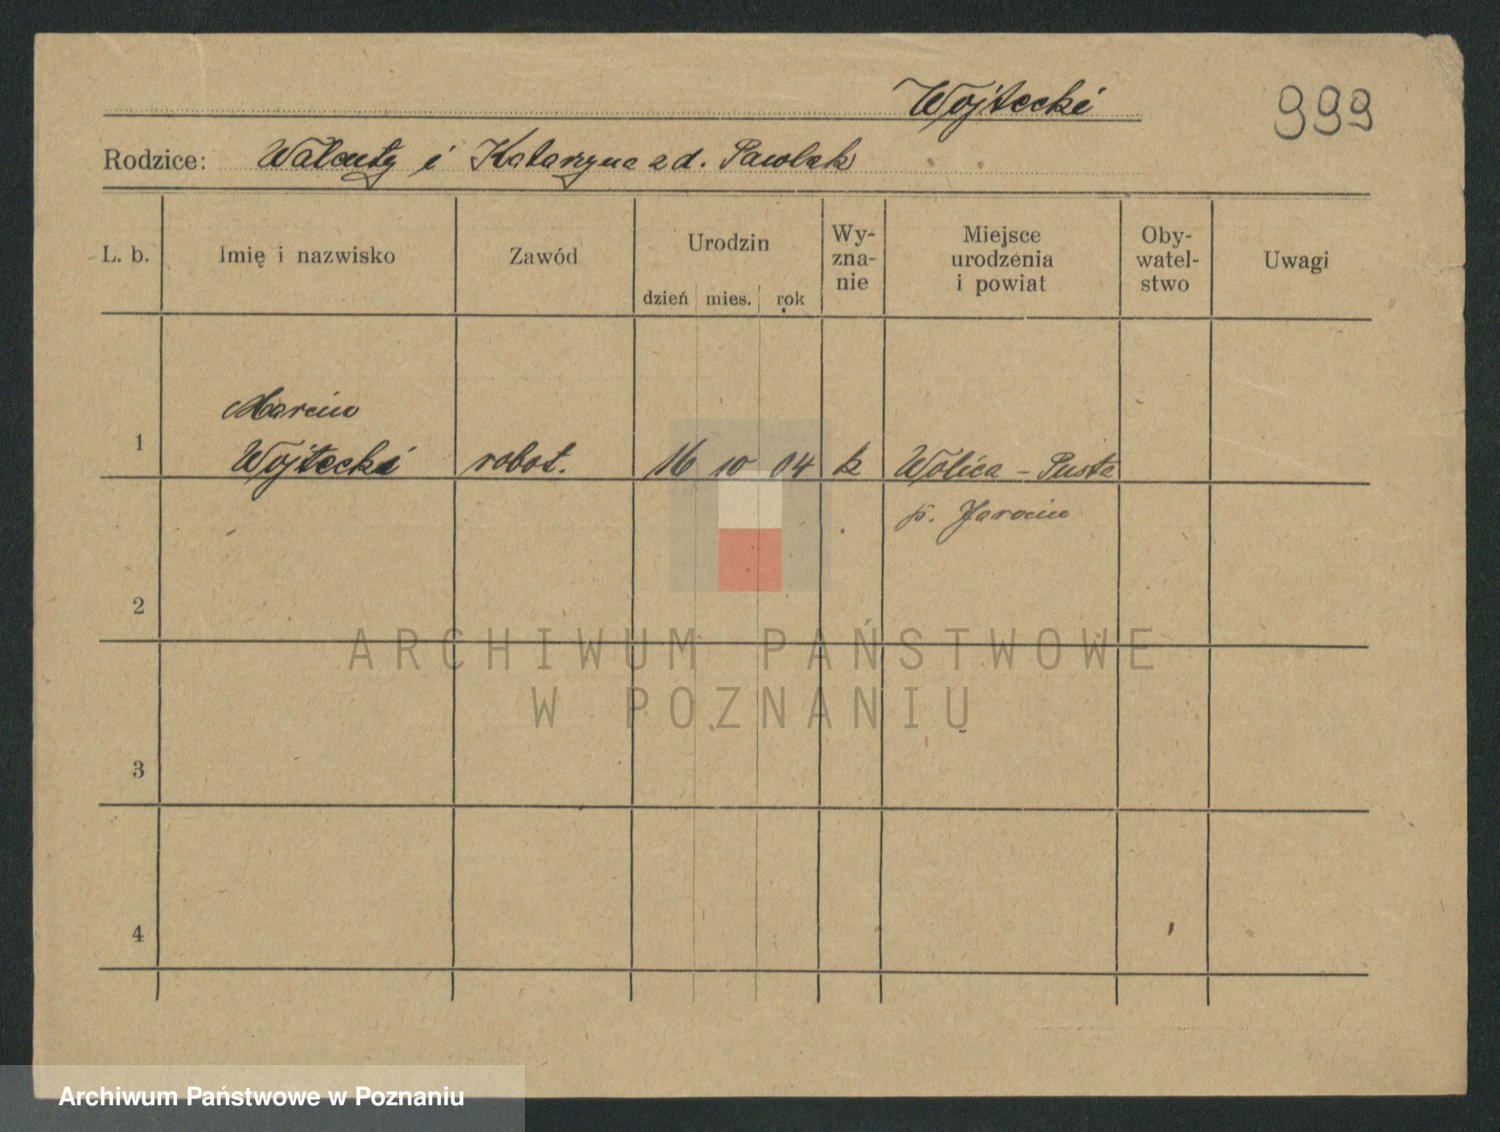 Wojtecki
999
Rodzice: Walenty i Katarzyna z d. Pawlak
L. b. Imię i nazwisko Zawód Urodzin dzień mies. rok Wy-zna-nie Miejsce urodzenia i powiat Oby-watel-stwo Uwagi
Marcin
1 Wojtecki robot. 16 10 04 k Wolica - Pusta
p. Jarocin
2
ARCHIWUM PAŃSTWOWE
W POZNANIU
3
4
Archiwum Państwowe w Poznaniu